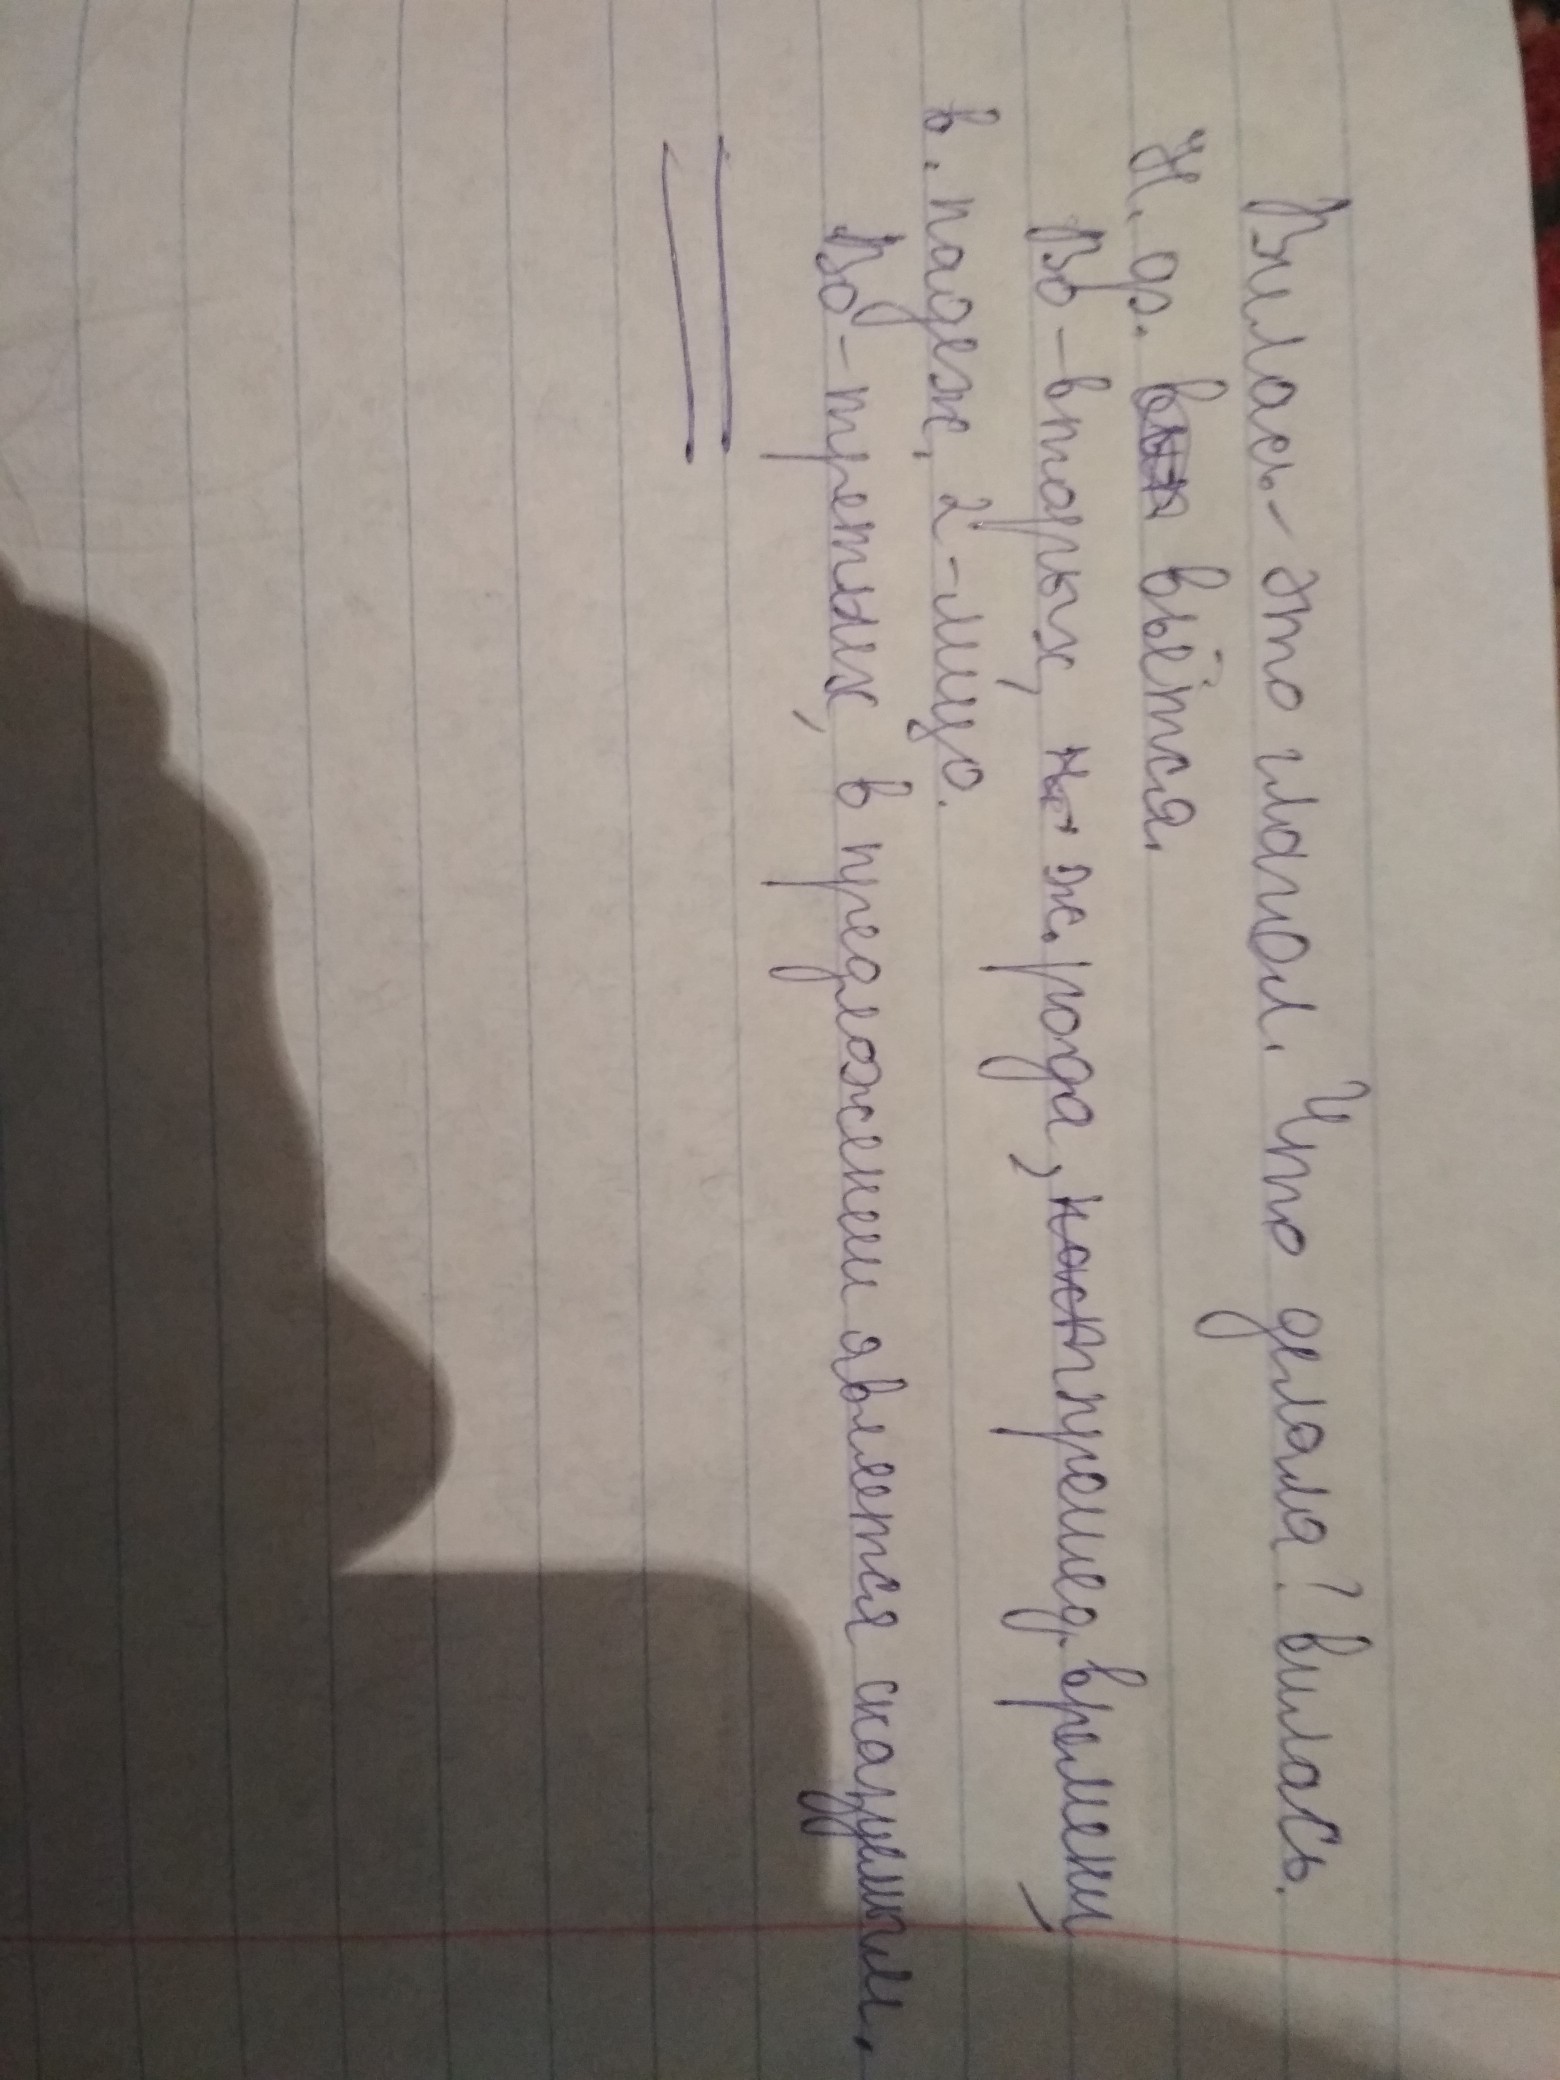 Вилась - это глагол. Что делала? вилась.
Н. ф. вьётся.
Во-вторых, ж. рода, прошед. времени,
в. падеж, 2-лицо.
Во-третьих, в предложении является сказуемым.